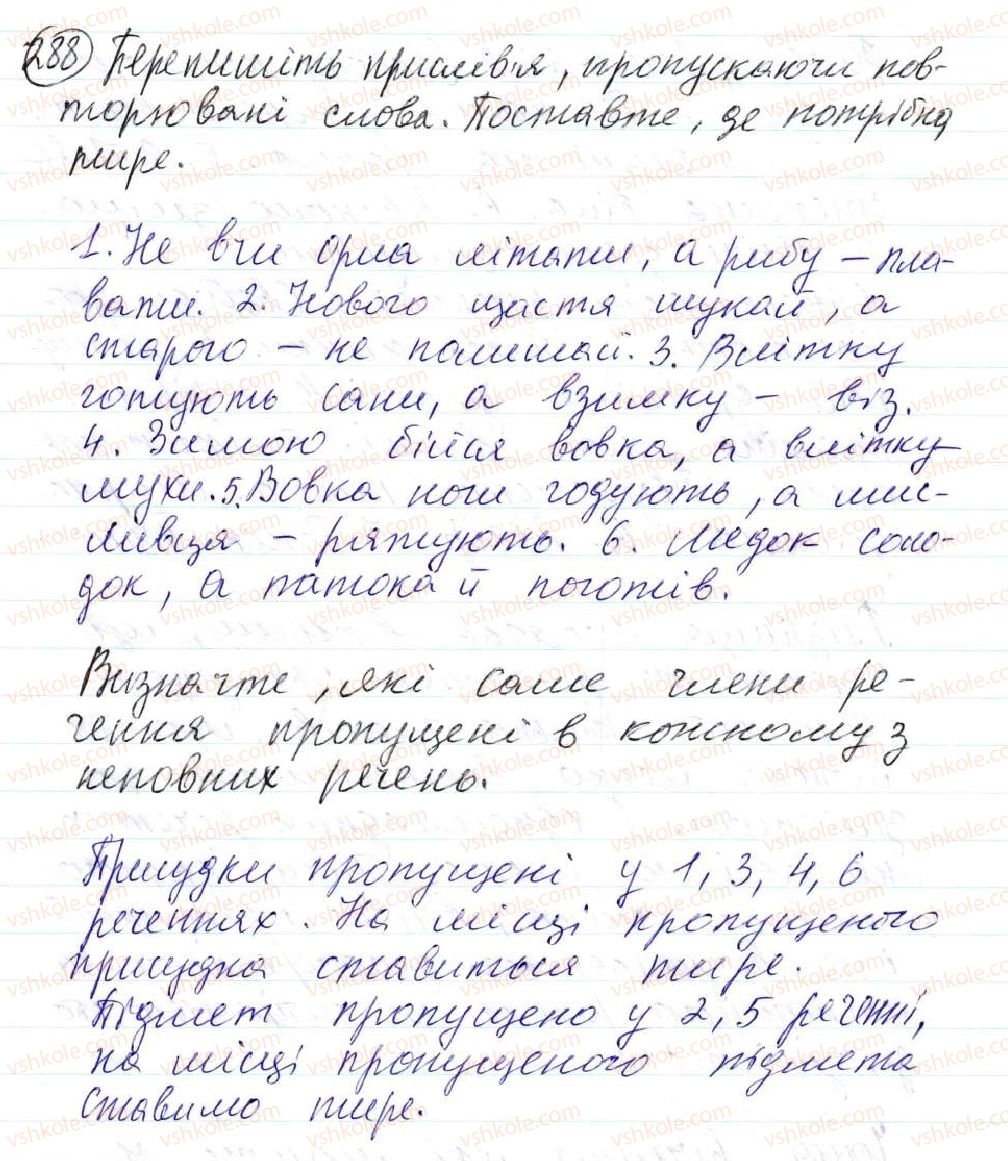 288 Перепишіть прислів'я, пропускаючи пов-
торювані слова. Поставте, де потрібна
тире.
1. Не вчи орла літати, а рибу – пла-
вати. 2. Нового щастя шукай, а
старого – не полишай. 3. Влітку
готують сани, а взимку – віз.
4. Зимою бійся вовка, а влітку –
мухи. 5. Вовка ноги годують, а мис-
ливця – рятують. 6. Медок соло-
док, а патока й поготів.
Визначте, які саме члени ре-
чення пропущені в кожному з
неповних речень.
Присудки пропущені у 1, 3, 4, 6
реченнях. На місці пропущеного
присудка ставиться тире.
Підмет пропущено у 2, 5 реченні,
на місці пропущеного підмета
ставимо тире.